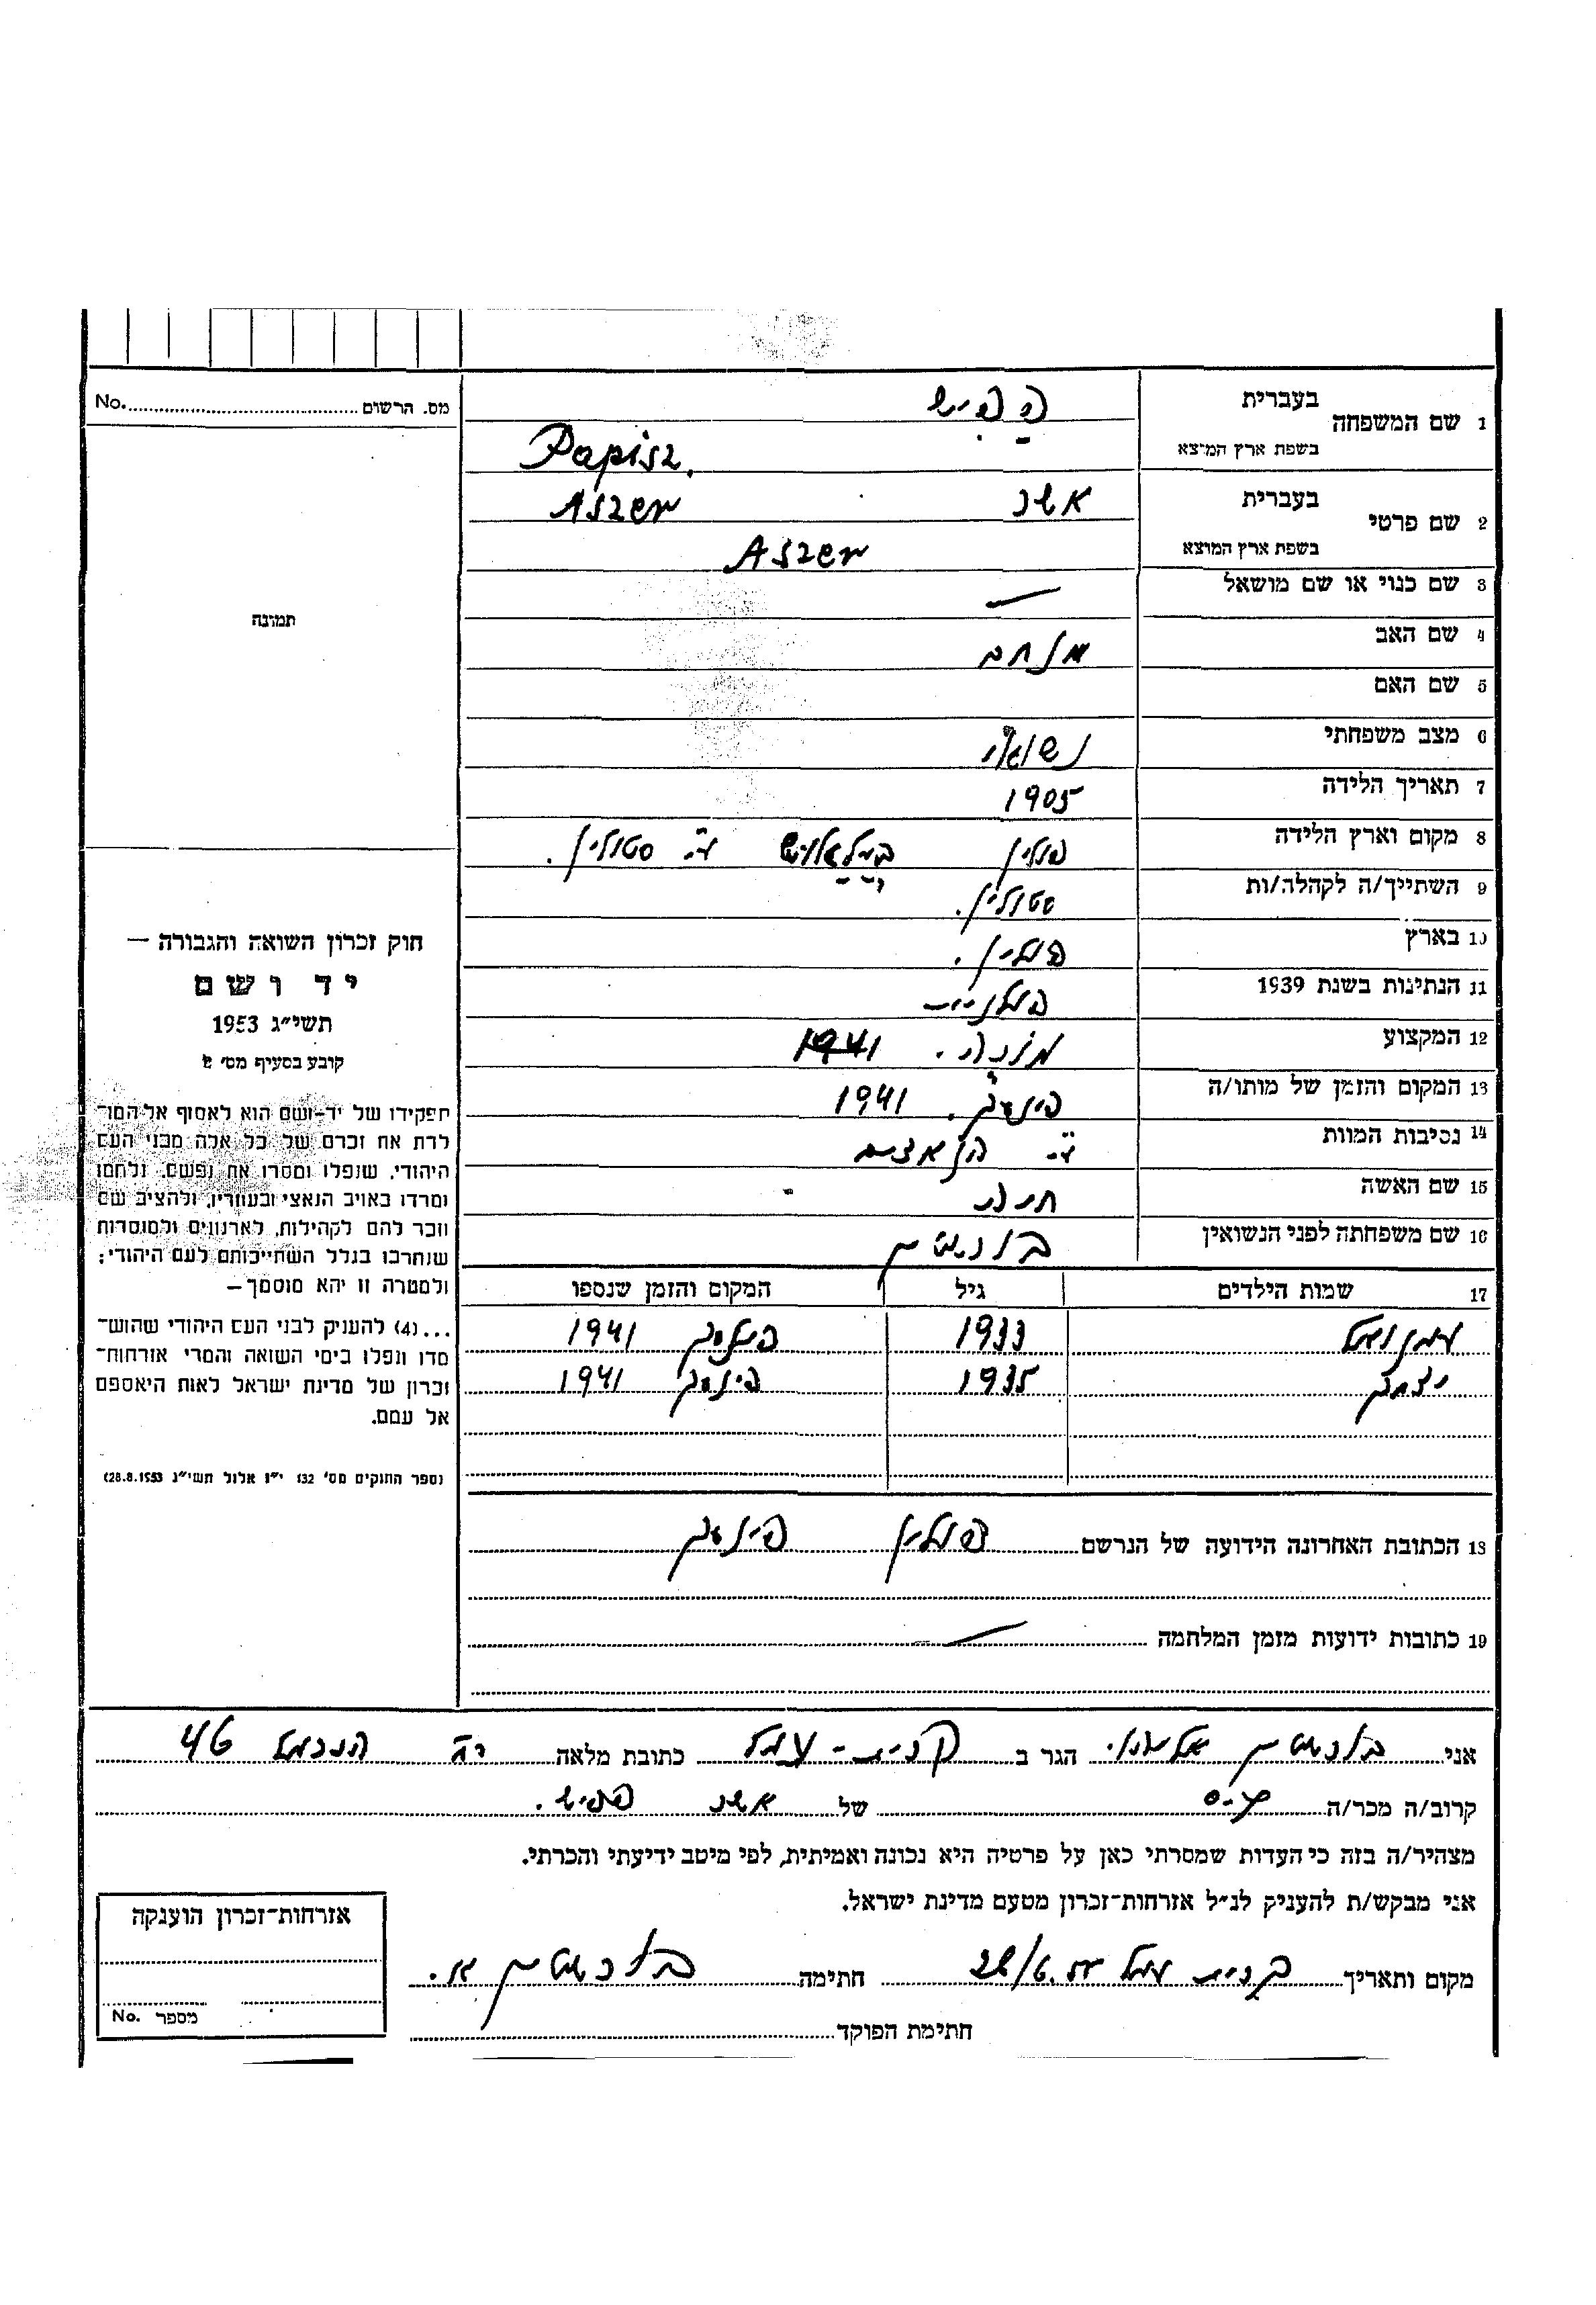 No. מס. הרשום
1 שם המשפחה בעברית פפיש
בשפת ארץ המוצא Papisz.
2 שם פרטי בעברית אשר Aszer
בשפת ארץ המוצא Aszer
3 שם כנוי או שם מושאל —
תמונה
4 שם האב מנחם
5 שם האם
6 מצב משפחתי נשוי
7 תאריך הלידה 1905
8 מקום וארץ הלידה פולין ע"י סטולין.
9 השתייך/ה לקהלה/ות סטולין.
10 בארץ פולין.
11 הנתינות בשנת 1939 פולנית
12 המקצוע מורה. 1941
13 המקום והזמן של מותו/ה פינסק. 1941
14 נסיבות המוות ע"י הנאצים
15 שם האשה חיה
16 שם משפחתה לפני הנשואין בורשטין
17 שמות הילדים גיל המקום והזמן שנספו
עמנואל 1933 פינסק 1941
יצחק 1935 פינסק 1941
18 הכתובת האחרונה הידועה של הנרשם פולין פינסק
19 כתובות ידועות מזמן המלחמה —
חוק זכרון השואה והגבורה —
יד ושם
תשי״ג 1953
קובע בסעיף מס׳ 2
תפקידו של יד-ושם הוא לאסוף אל המו־
לדת את זכרם של כל אלה מבני העם
היהודי, שנפלו ומסרו את נפשם, נלחמו
ומרדו באויב הנאצי ובעוזריו, ולהציב שם
וזכר להם לקהילות, לארגונים ולמוסדות
שנחרבו בגלל השתייכותם לעם היהודי;
ולמטרה זו יהא מוסמך—
...(4) להעניק לבני העם היהודי שהוש־
מדו ונפלו בימי השואה והמרי אזרחות־
זכרון של מדינת ישראל לאות היאספם
אל עמם.
(ספר החוקים מס׳ 132 י״ז אלול תשי״ג 28.8.1953)
אני בורשטין הגר ב קרית-עמל כתובת מלאה רח הכרמל 46
קרוב/ה מכר/ה גיס של אשר פפיש.
מצהיר/ה בזה כי העדות שמסרתי כאן על פרטיה היא נכונה ואמיתית, לפי מיטב ידיעתי והכרתי.
אני מבקש/ת להעניק לנ״ל אזרחות־זכרון מטעם מדינת ישראל.
מקום ותאריך קרית עמל חתימה בורשטין א.
חתימת הפוקד
אזרחות־זכרון הוענקה
No. מספר